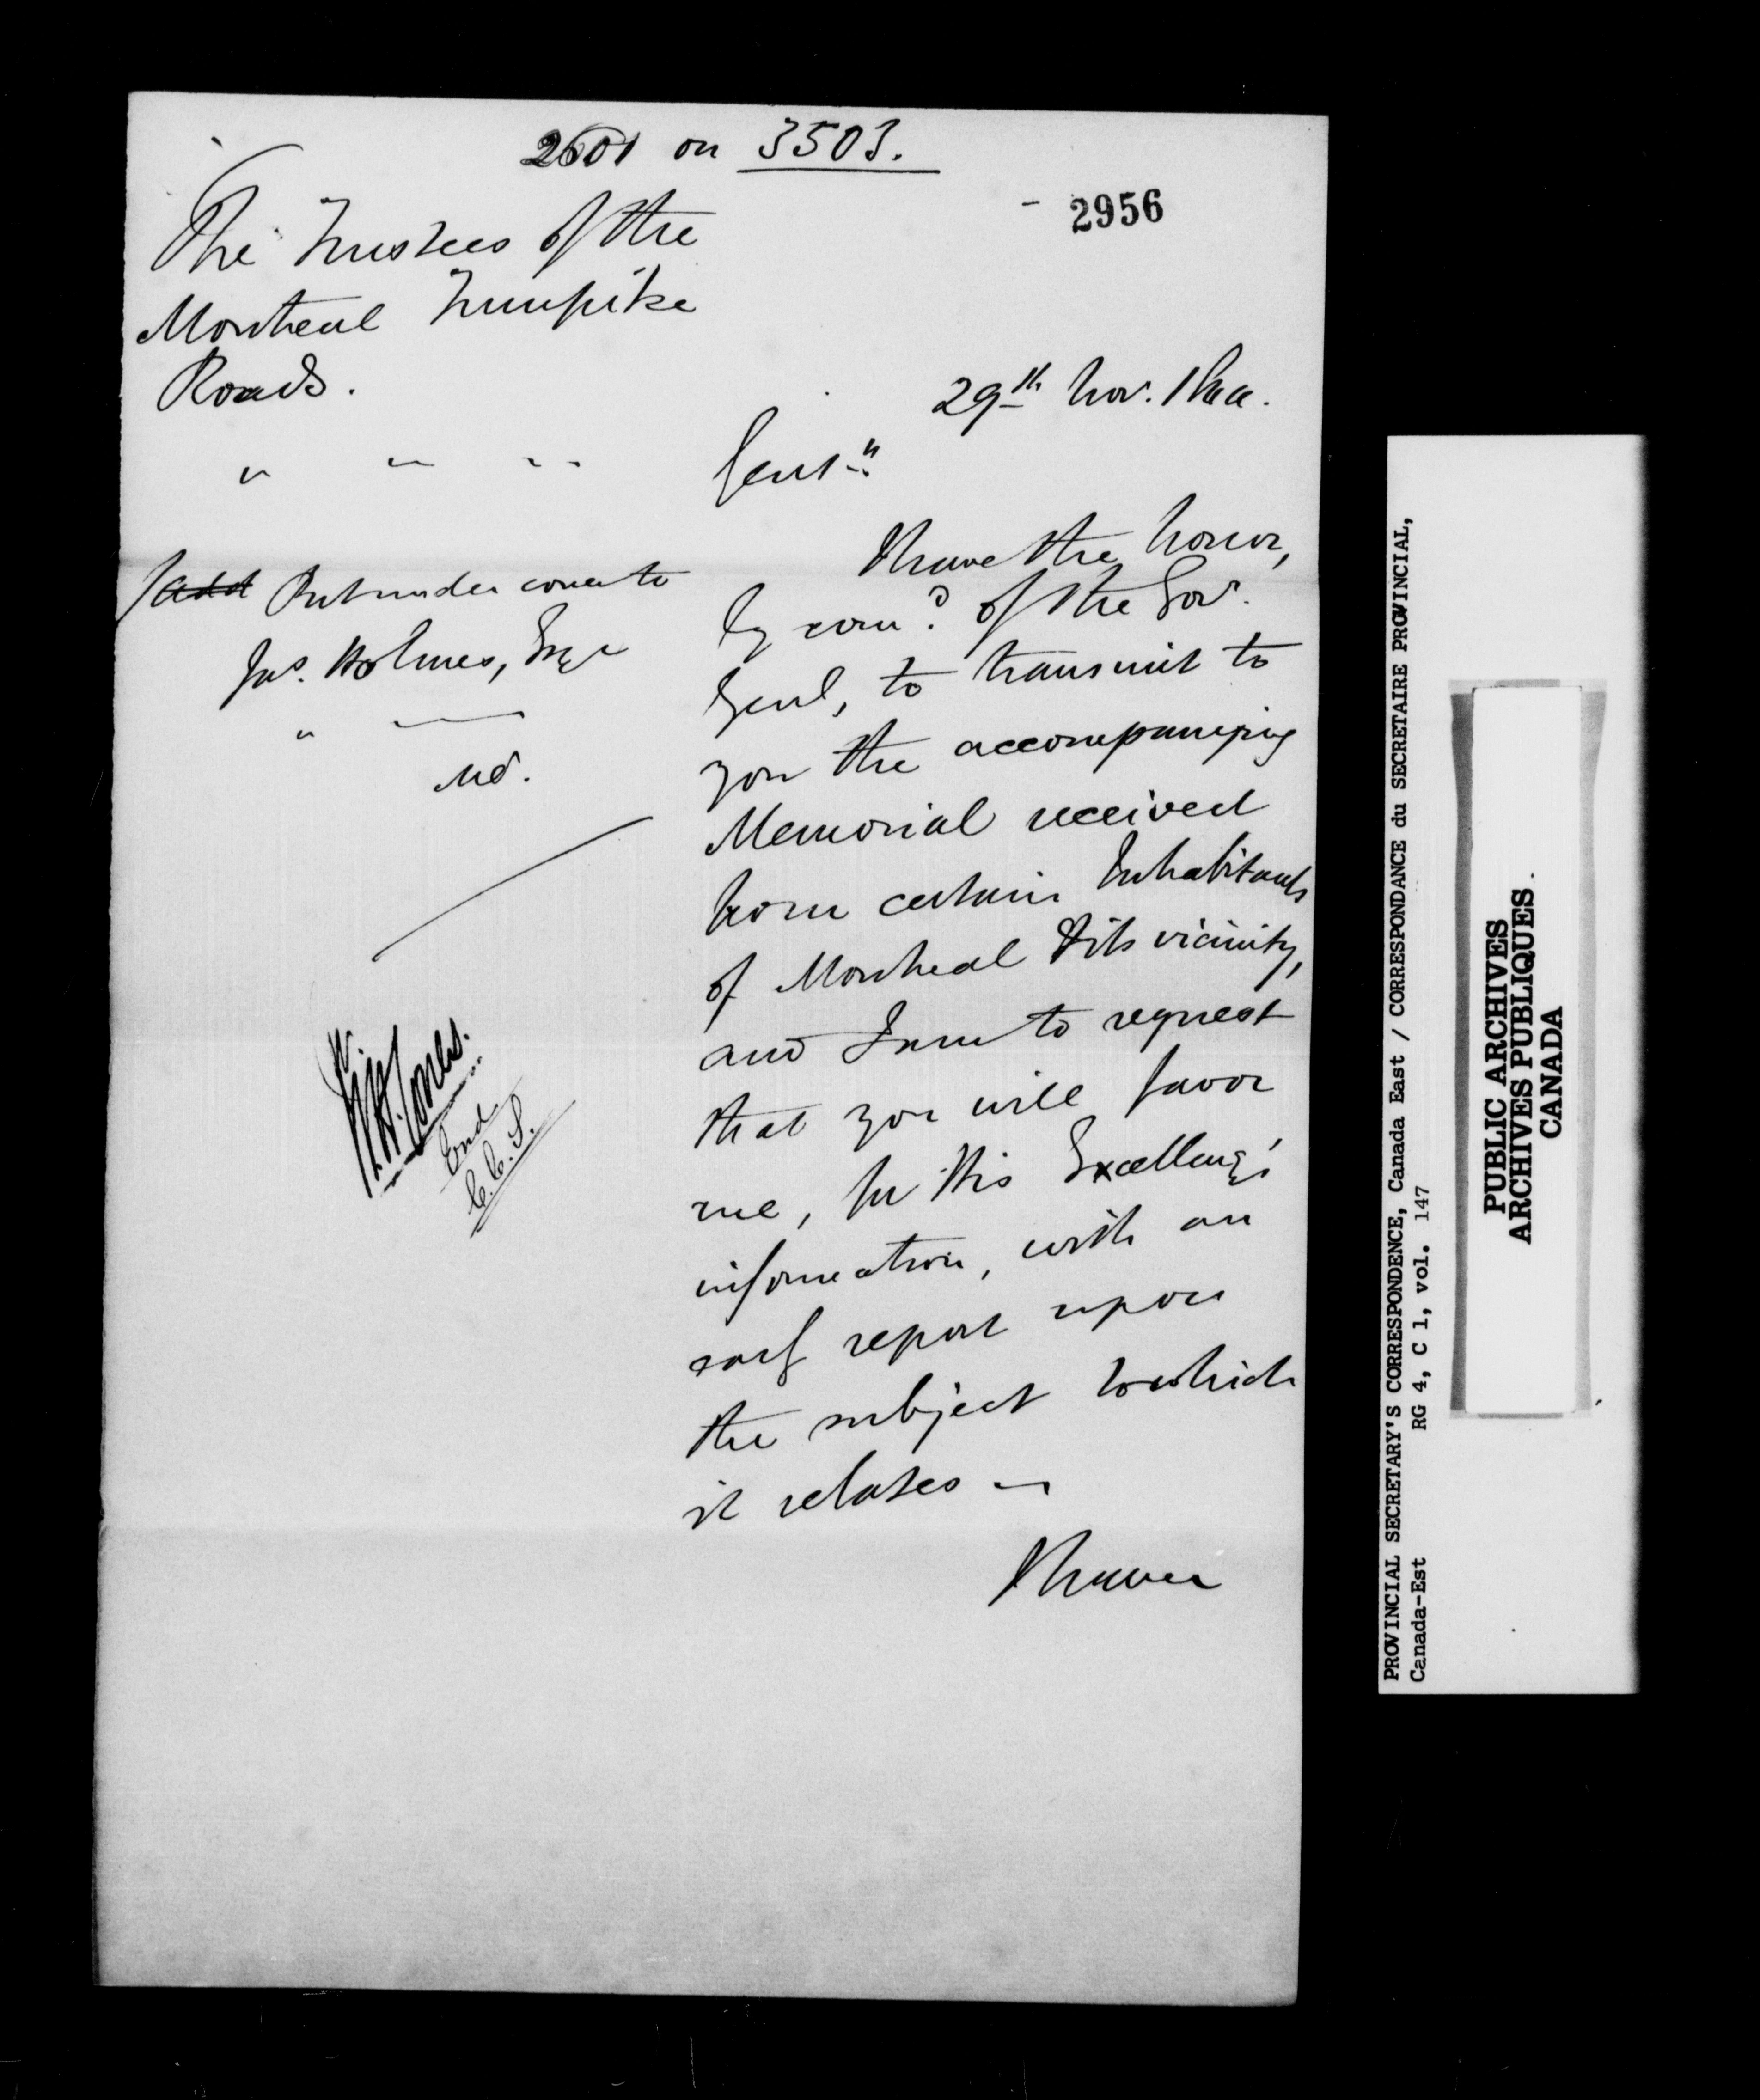 2601 on 3503.
- 2956
The Trustees of the
Montreal Turnpike
Roads.
29th Nov. 1844.
Gent.n
I have the honor,
by com.d of the Gov.
Genl, to transmit to
you the accompanying
Memorial received
from certain Inhabitants
of Montreal & its vicinity,
and I am to request
that you will favor
me, for His Excellency's
information, with an
early report upon
the subject to which
it relates —
I have
add Put under cover to
Jas. Holmes, Esqr
Md.
Ent.d
C.C.S.
PROVINCIAL SECRETARY'S CORRESPONDENCE, Canada East / CORRESPONDANCE du SECRETAIRE PROVINCIAL,
Canada-Est RG 4, C 1, vol. 147
PUBLIC ARCHIVES
ARCHIVES PUBLIQUES
CANADA